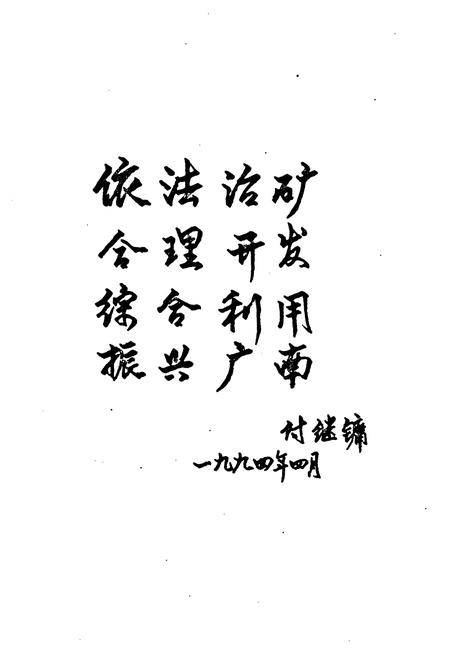 依法治矿
合理开发
综合利用
振兴广南
付继镛
一九九四年四月